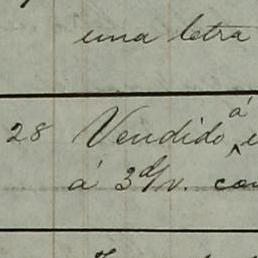 una letra
28 Vendido á
á 3 d/v.